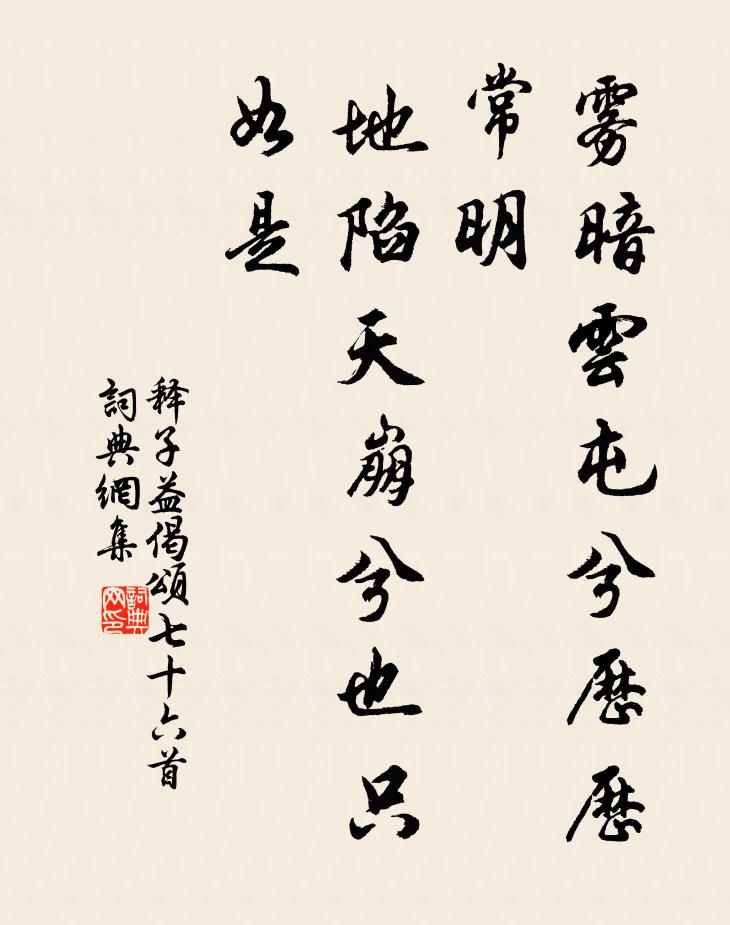 雾暗雲屯兮歷歷
常明
地陷天崩兮也只
如是
释子益偈頌七十六首
詞典網集
詞典网印